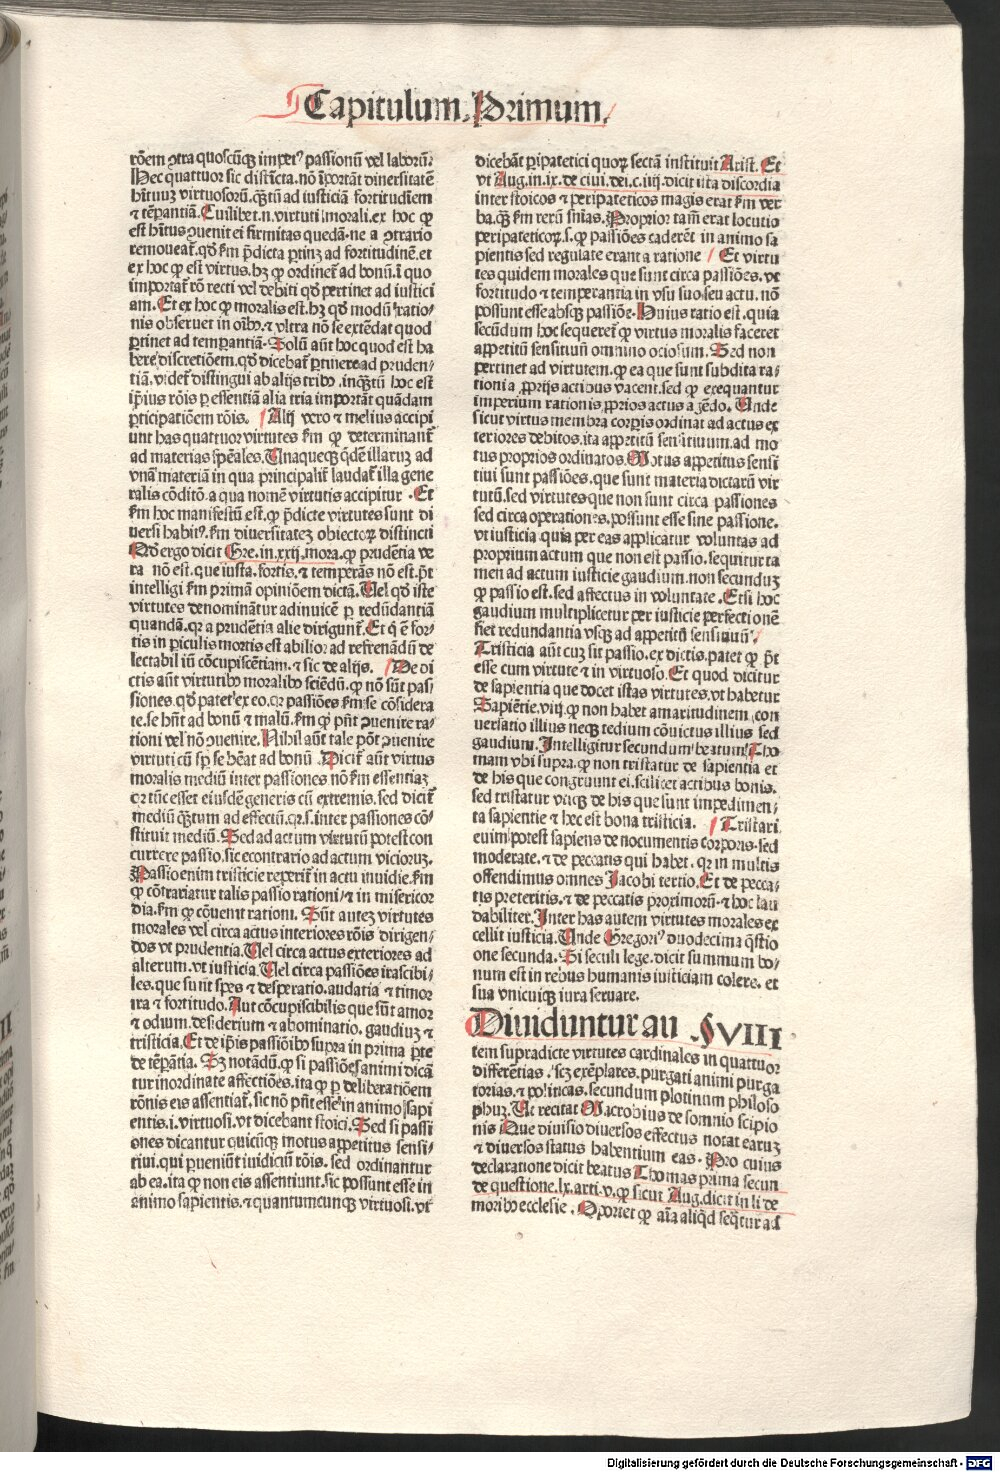 Capitulum. Primum.
rõem ꝯtra quoscũqꝫ impetꝰ passionũ vel laborũ.
Hec quattuor sic distĩcta. nõ ĩportãt diuersitatẽ
hĩtuuꝫ virtuosorũ. qꝫtũ ad iusticiã fortitudinẽm
et tẽꝑantiã. Cuilibet .n. virtuti morali. ex hoc ꝙ
est hĩtus ꝯuenit ei firmitas quedã. ne a ꝯtrario
remoueat᷑. qđ ẽm p̃dicta ꝑtinꝫ ad fortitudinẽ. et
ex hoc ꝙ est virtus. hꝫ ꝙ ordinet᷑ ad bonũ. ĩ quo
importat᷑ rõ recti vel debiti qđ pertinet ad iustici
am. Et ex hoc ꝙ moralis est. hꝫ qđ modũ ratio⸗
nis obseruet in oĩbꝰ. ⁊ vltra nõ se extẽdat quod
ꝑtinet ad temꝑantiã. Solũ aũt hoc quod est ha
bere discretiõem. qđ dicebat᷑ ꝑtinere ad pruden⸗
tiã. videt᷑ distingui ab alijs tribꝰ. inqꝫtũ hoc est
ip̃ius rõis ꝑ essentiã alia tria importãt quãdam
ꝑticipatiõem rõis. Alij vero ⁊ melius accipi
unt has quattuor virtutes ẽm ꝙ determinant᷑
ad materias sp̃eales. Unaquecqꝫ qͥdẽ illaruꝫ ad
vnã materiã in qua principalit᷑ laudat᷑ illa gene
ralis cõditõ. a qua nomẽ virtutis accipitur. Et
ẽm hoc manifestũ est. ꝙ p̃dicte virtutes sunt di
uersi habitꝰ. ẽm diuersitateꝫ obiectoꝝ distincti
Qđ ergo dicit Gre. in. xxij. mora. ꝙ prudẽtia ve
ra nõ est. que iusta. fortis. ⁊ temperãs nõ est. p̃t
intelligi ẽm primã opiniõem dictã. Uel qđ iste
virtutes denominãtur adinuicẽ ꝑ redũdantiã
quandã. qꝛ a prudẽtia alie dirigunt᷑. Et qͥ ẽ for⸗
tis in ꝑiculis mortis est abilior ad refrenãdũ de
lectabiliũ cõcupiscẽtiam. ⁊ sic de alijs. De di
ctis aũt virtutibꝰ moralibꝰ sciẽdũ. ꝙ nõ sũt pas⸗
siones. qđ patet ex eo. qꝛ passiões ẽm se cõsidera
te. se hñt ad bonũ ⁊ malũ. ẽm ꝙ pñt ꝯuenire ra⸗
tioni vel nõ ꝯuenire. Nihil aũt tale põt ꝯuenire
virtuti cũ sꝑ se hẽat ad bonũ. Dicit᷑ aũt virtus
moralis mediũ inter passiones nõ ẽm essentiaꝫ
qꝛ tũc esset eiusdẽ generis cũ extremis. sed dicit᷑
mediũ qꝫtum ad effectũ. qꝛ .s. inter passiones cõ⸗
stituit mediũ. Sed ad actum virtutũ potest con
currere passio. sic econtrario ad actum vicioruꝫ.
Passio enim tristicie reperit᷑ in actu inuidie. ẽm
ꝙ cõtrariatur talis passio rationi. ⁊ in misericor
dia. ẽm ꝙ cõuenit rationi. Sũt auteꝫ virtutes
morales vel circa actus interiores rõis dirigen⸗
dos vt prudentia. Uel circa actus exteriores ad
alterum. vt iusticia. Uel circa passiões irascibi⸗
les. que sunt spes ⁊ desperatio. audatia ⁊ timor
ira ⁊ fortitudo. Aut cõcupiscibilis que sũt amor
⁊ odium. desiderium ⁊ abominatio. gaudiuꝫ ⁊
tristicia. Et de ip̃is passiõibꝰ supra in prima ꝑte
de tẽꝑãtia. Sꝫ notãdũ. ꝙ si passiões animi dicã
tur inordinate affectiões. ita ꝙ ꝑ deliberatiõem
rõnis eis assentiat᷑. sic nõ pñt esse in animo sapi
entis. i. virtuosi. vt dicebant stoici. Sed si passi
ones dicantur quicũqꝫ motus appetitus sensi⸗
tiui. qui ꝑueniũt iuidiciũ rõis. sed ordinantur
ab ea. ita ꝙ non eis assentiunt. sic possunt esse in
animo sapientis. ⁊ quantumcunqꝫ virtuosi. vt
dicebãt ꝑipatetici quoꝝ sectã instituit Arist. Et
vt Aug. in. ix. de ciui. dei. c. iiij. dicit ista discordia
inter stoicos ⁊ peripateticos magis erat ẽm ver
ba. qꝫ ẽm rerũ sñias. Proprior tam̃ erat locutio
peripateticoꝝ .s. ꝙ passiões caderẽt in animo sa
pientis sed regulate erant a ratione Et virtu
tes quidem morales que sunt circa passiões. vt
fortitudo ⁊ temperantia in vsu suo. seu actu. nõ
possunt esse absqꝫ passiõe. Huius ratio est. quia
secũndum hoc sequeret᷑ ꝙ virtus moralis faceret
appetitũ sensitiuũ omnino ociosum. Sed non
pertinet ad virtutem. ꝙ ea que sunt subdita ra⸗
tioni a ꝓprijs actibus vacent. sed ꝙ exequantur
imperium rationis ꝓprios actus agẽdo. Unde
sicut virtus membra corꝑis ordinat ad actus ex
teriores debitos. ita appetitũ sensitiuum. ad mo
tus proprios ordinatos. Motus appetitus sensi
tiui sunt passiões. que sunt materia dictarũ vir
tutũ. sed virtutes que non sunt circa passiones
sed circa operationes. possunt esse sine passione.
vt iusticia. quia per eas applicatur voluntas ad
proprium actum que non est passio. sequitur ta
men ad actum iusticie gaudium. non secunduꝫ
ꝙ passio est. sed affectus in voluntate. Et si hoc
gaudium multiplicetur per iusticie perfectionẽ
fiet redundantia vsqꝫ ad appetitũ sensitiuũ.
Tristicia aũt cuꝫ sit passio. ex dictis. patet ꝙ p̃t
esse cum virtute ⁊ in virtuoso. Et quod dicitur
de sapientia que docet istas virtutes. vt habetur
Sapiẽtie. viij. ꝙ non habet amaritudinem con
uersatio illius necqꝫ tedium cõuictus illius sed
gaudium. Intelligitur secundum beatum Tho
mam vbi supra. ꝙ non tristatur de sapientia et
de his que congruunt ei. scilicet actibus bonis.
sed tristatur vticqꝫ de his que sunt impedimen⸗
ta sapientie ⁊ hec est bona tristicia. Tristari
enim potest sapiens de nocumentis corporis. sed
moderate. ⁊ de peccatis qui habet. qꝛ in multis
offendimus omnes Jacobi tertio. Et de pecca⸗
tis preteritis. ⁊ de peccatis proximorũ. ⁊ hoc lau
dabiliter. Inter has autem virtutes morales ex
cellit iusticia. Unde Gregoriꝰ duodecima q̃stio
one secunda. Si seculi lege. dicit summum bo⸗
num est in rebus humanis iusticiam colere. et
sua vnicuiqꝫ iura seruare.
Diuiduntur au §VIII
tem supradicte virtutes cardinales in quattuor
differẽtias. scꝫ exẽplares. purgati animi purga
torias. ⁊ politicas. secundum plotinum philoso
phuꝫ. Ut recitat Macrobius de somnio scipio
nis Que diuisio diuersos effectus notat earuꝫ
⁊ diuersos status habentium eas. Pro cuius
declaratione dicit beatus Thomas prima secun
de questione. lx. arti. v. ꝙ sicut Aug. dicit in li de
moribꝰ ecclesie. Oportet ꝙ aĩa aliqͥd seqͣtur ad
Digitalisierung gefördert durch die Deutsche Forschungsgemeinschaft - DFG